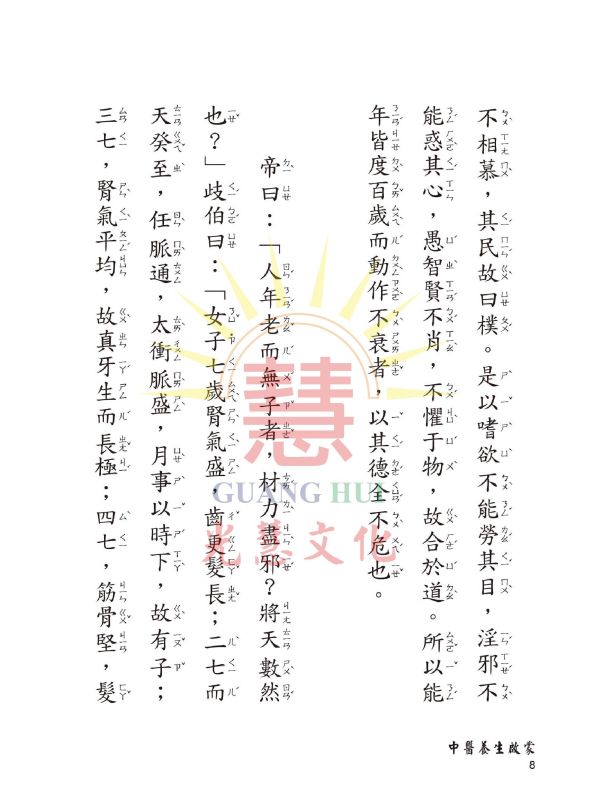 不相慕，其民故曰樸。是以嗜欲不能勞其目，淫邪不
能惑其心，愚智賢不肖，不懼于物，故合於道。所以能
年皆度百歲而動作不衰者，以其德全不危也。
帝曰：「人年老而無子者，材力盡邪？將天數然
也？」歧伯曰：「女子七歲腎氣盛，齒更髮長；二七而
天癸至，任脈通，太衝脈盛，月事以時下，故有子；
三七，腎氣平均，故真牙生而長極；四七，筋骨堅，髮
慧
GUANG HUI
光慧文化
中醫養生啟蒙
8